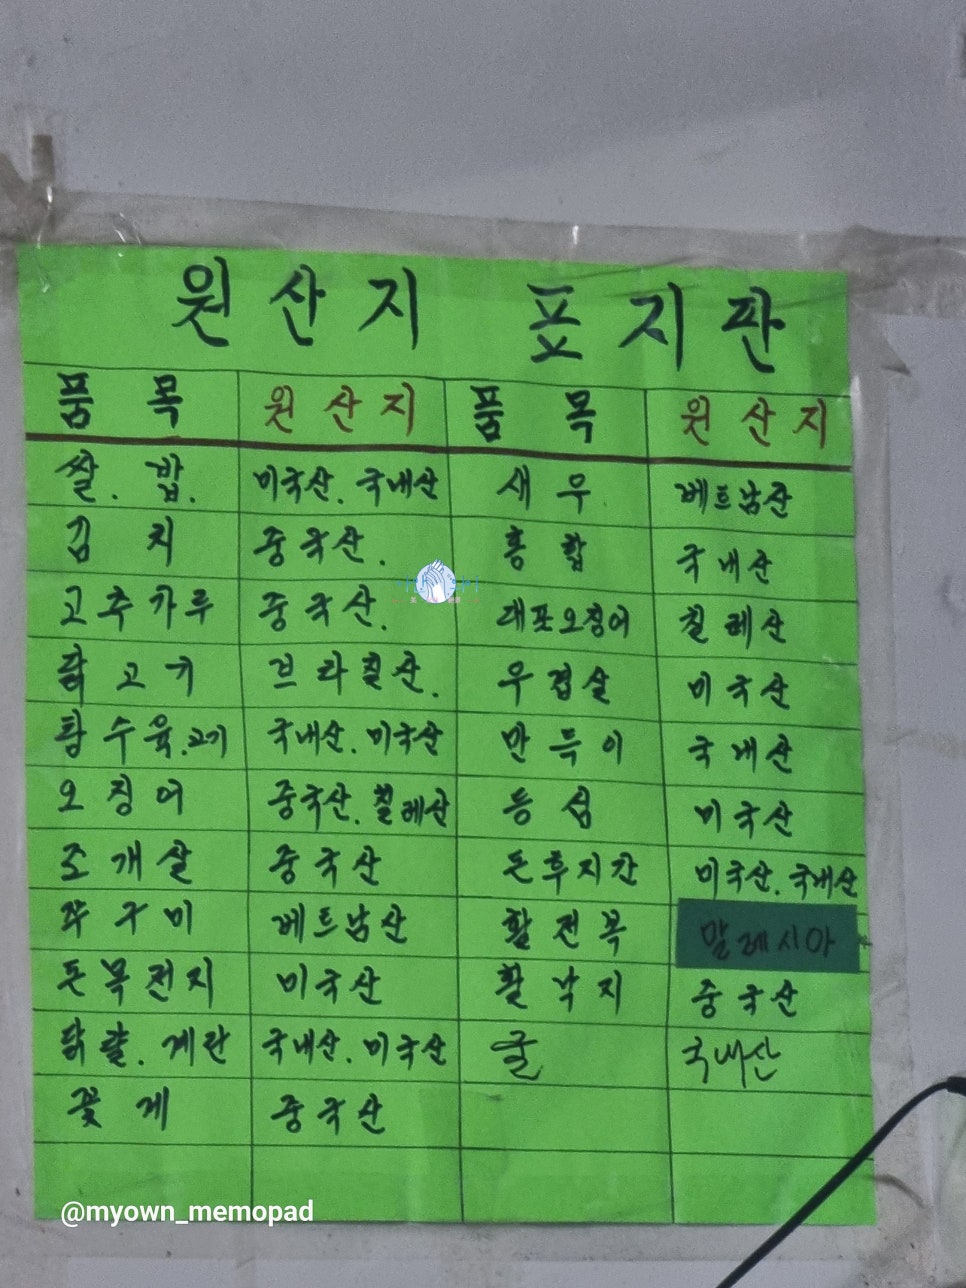 원산지 표지판
품목 원산지 품목 원산지
쌀. 밥. 미국산. 국내산 새우 베트남산
김치 중국산. 홍합 국내산
고추가루 중국산. 대포오징어 칠레산
닭고기 브라질산. 우겹살 미국산
탕수육.고기 국내산. 미국산 만득이 국내산
오징어 중국산. 칠레산 등심 미국산
조개살 중국산 돈후지간 미국산. 국내산
쭈구미 베트남산 활전복 말레시아
돈목전지 미국산 활낙지 중국산
닭알. 계란 국내산. 미국산 굴 국내산
꽃게 중국산
@myown_memopad